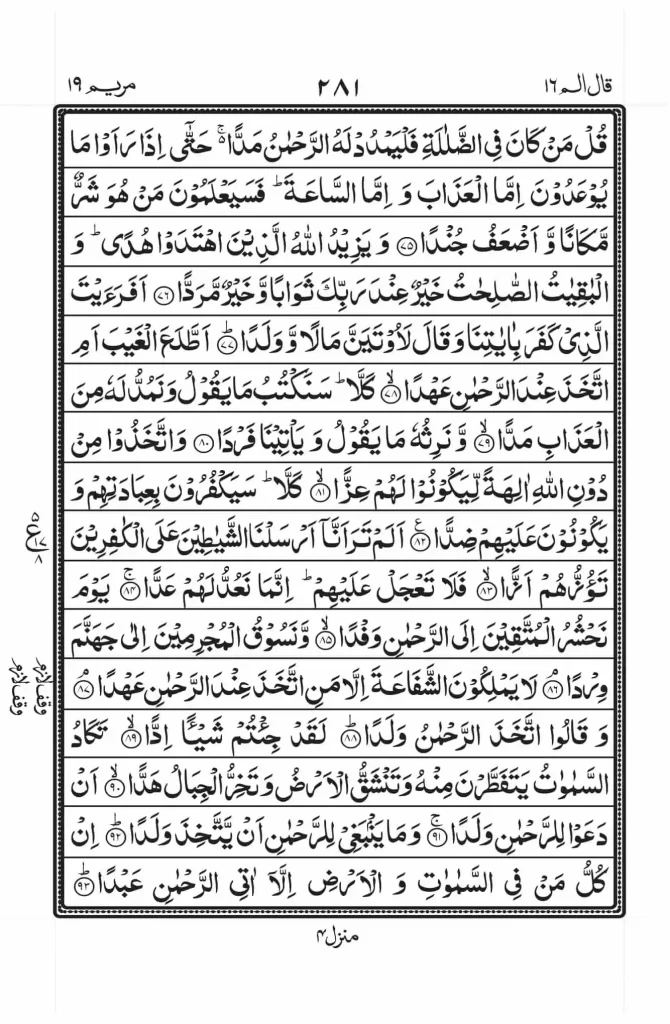 قال الم ١٦ ٢٨١ مريم ١٩
قُلْ مَنْ كَانَ فِی الضَّلٰلَةِ فَلْیَمْدُدْ لَهُ الرَّحْمٰنُ مَدًّا ۚ۬ حَتّٰۤی اِذَا رَاَوْا مَا
یُوْعَدُوْنَ اِمَّا الْعَذَابَ وَ اِمَّا السَّاعَةَ ؕ فَسَیَعْلَمُوْنَ مَنْ هُوَ شَرٌّ
مَّكَانًا وَّ اَضْعَفُ جُنْدًا ﴿۷۵﴾ وَ یَزِیْدُ اللّٰهُ الَّذِیْنَ اهْتَدَوْا هُدًی ؕ وَ
الْبٰقِیٰتُ الصّٰلِحٰتُ خَیْرٌ عِنْدَ رَبِّكَ ثَوَابًا وَّ خَیْرٌ مَّرَدًّا ﴿۷۶﴾ اَفَرَءَیْتَ
الَّذِیْ كَفَرَ بِاٰیٰتِنَا وَ قَالَ لَاُوْتَیَنَّ مَالًا وَّ وَلَدًا ﴿ؕ۷۷﴾ اَطَّلَعَ الْغَیْبَ اَمِ
اتَّخَذَ عِنْدَ الرَّحْمٰنِ عَهْدًا ﴿ۙ۷۸﴾ كَلَّا ؕ سَنَكْتُبُ مَا یَقُوْلُ وَ نَمُدُّ لَهٗ مِنَ
الْعَذَابِ مَدًّا ﴿ۙ۷۹﴾ وَّ نَرِثُهٗ مَا یَقُوْلُ وَ یَاْتِیْنَا فَرْدًا ﴿۸۰﴾ وَ اتَّخَذُوْا مِنْ
دُوْنِ اللّٰهِ اٰلِهَةً لِّیَكُوْنُوْا لَهُمْ عِزًّا ﴿ۙ۸۱﴾ كَلَّا ؕ سَیَكْفُرُوْنَ بِعِبَادَتِهِمْ وَ
یَكُوْنُوْنَ عَلَیْهِمْ ضِدًّا ﴿۸۲﴾ اَلَمْ تَرَ اَنَّاۤ اَرْسَلْنَا الشَّیٰطِیْنَ عَلَی الْكٰفِرِیْنَ
تَؤُزُّهُمْ اَزًّا ﴿ۙ۸۳﴾ فَلَا تَعْجَلْ عَلَیْهِمْ ؕ اِنَّمَا نَعُدُّ لَهُمْ عَدًّا ﴿ۚ۸۴﴾ یَوْمَ
نَحْشُرُ الْمُتَّقِیْنَ اِلَی الرَّحْمٰنِ وَفْدًا ﴿ۙ۸۵﴾ وَّ نَسُوْقُ الْمُجْرِمِیْنَ اِلٰی جَهَنَّمَ
وِرْدًا ﴿ۘ۸۶﴾ لَا یَمْلِكُوْنَ الشَّفَاعَةَ اِلَّا مَنِ اتَّخَذَ عِنْدَ الرَّحْمٰنِ عَهْدًا ﴿ۘ۸۷﴾
وَ قَالُوا اتَّخَذَ الرَّحْمٰنُ وَلَدًا ﴿ؕ۸۸﴾ لَقَدْ جِئْتُمْ شَیْـًٔا اِدًّا ﴿ۙ۸۹﴾ تَكَادُ
السَّمٰوٰتُ یَتَفَطَّرْنَ مِنْهُ وَ تَنْشَقُّ الْاَرْضُ وَ تَخِرُّ الْجِبَالُ هَدًّا ﴿ۙ۹۰﴾ اَنْ
دَعَوْا لِلرَّحْمٰنِ وَلَدًا ﴿ۚ۹۱﴾ وَ مَا یَنْۢبَغِیْ لِلرَّحْمٰنِ اَنْ یَّتَّخِذَ وَلَدًا ﴿ؕ۹۲﴾ اِنْ
كُلُّ مَنْ فِی السَّمٰوٰتِ وَ الْاَرْضِ اِلَّاۤ اٰتِی الرَّحْمٰنِ عَبْدًا ﴿ؕ۹۳﴾
وقف لازم
وقف لازم
منزل ۴